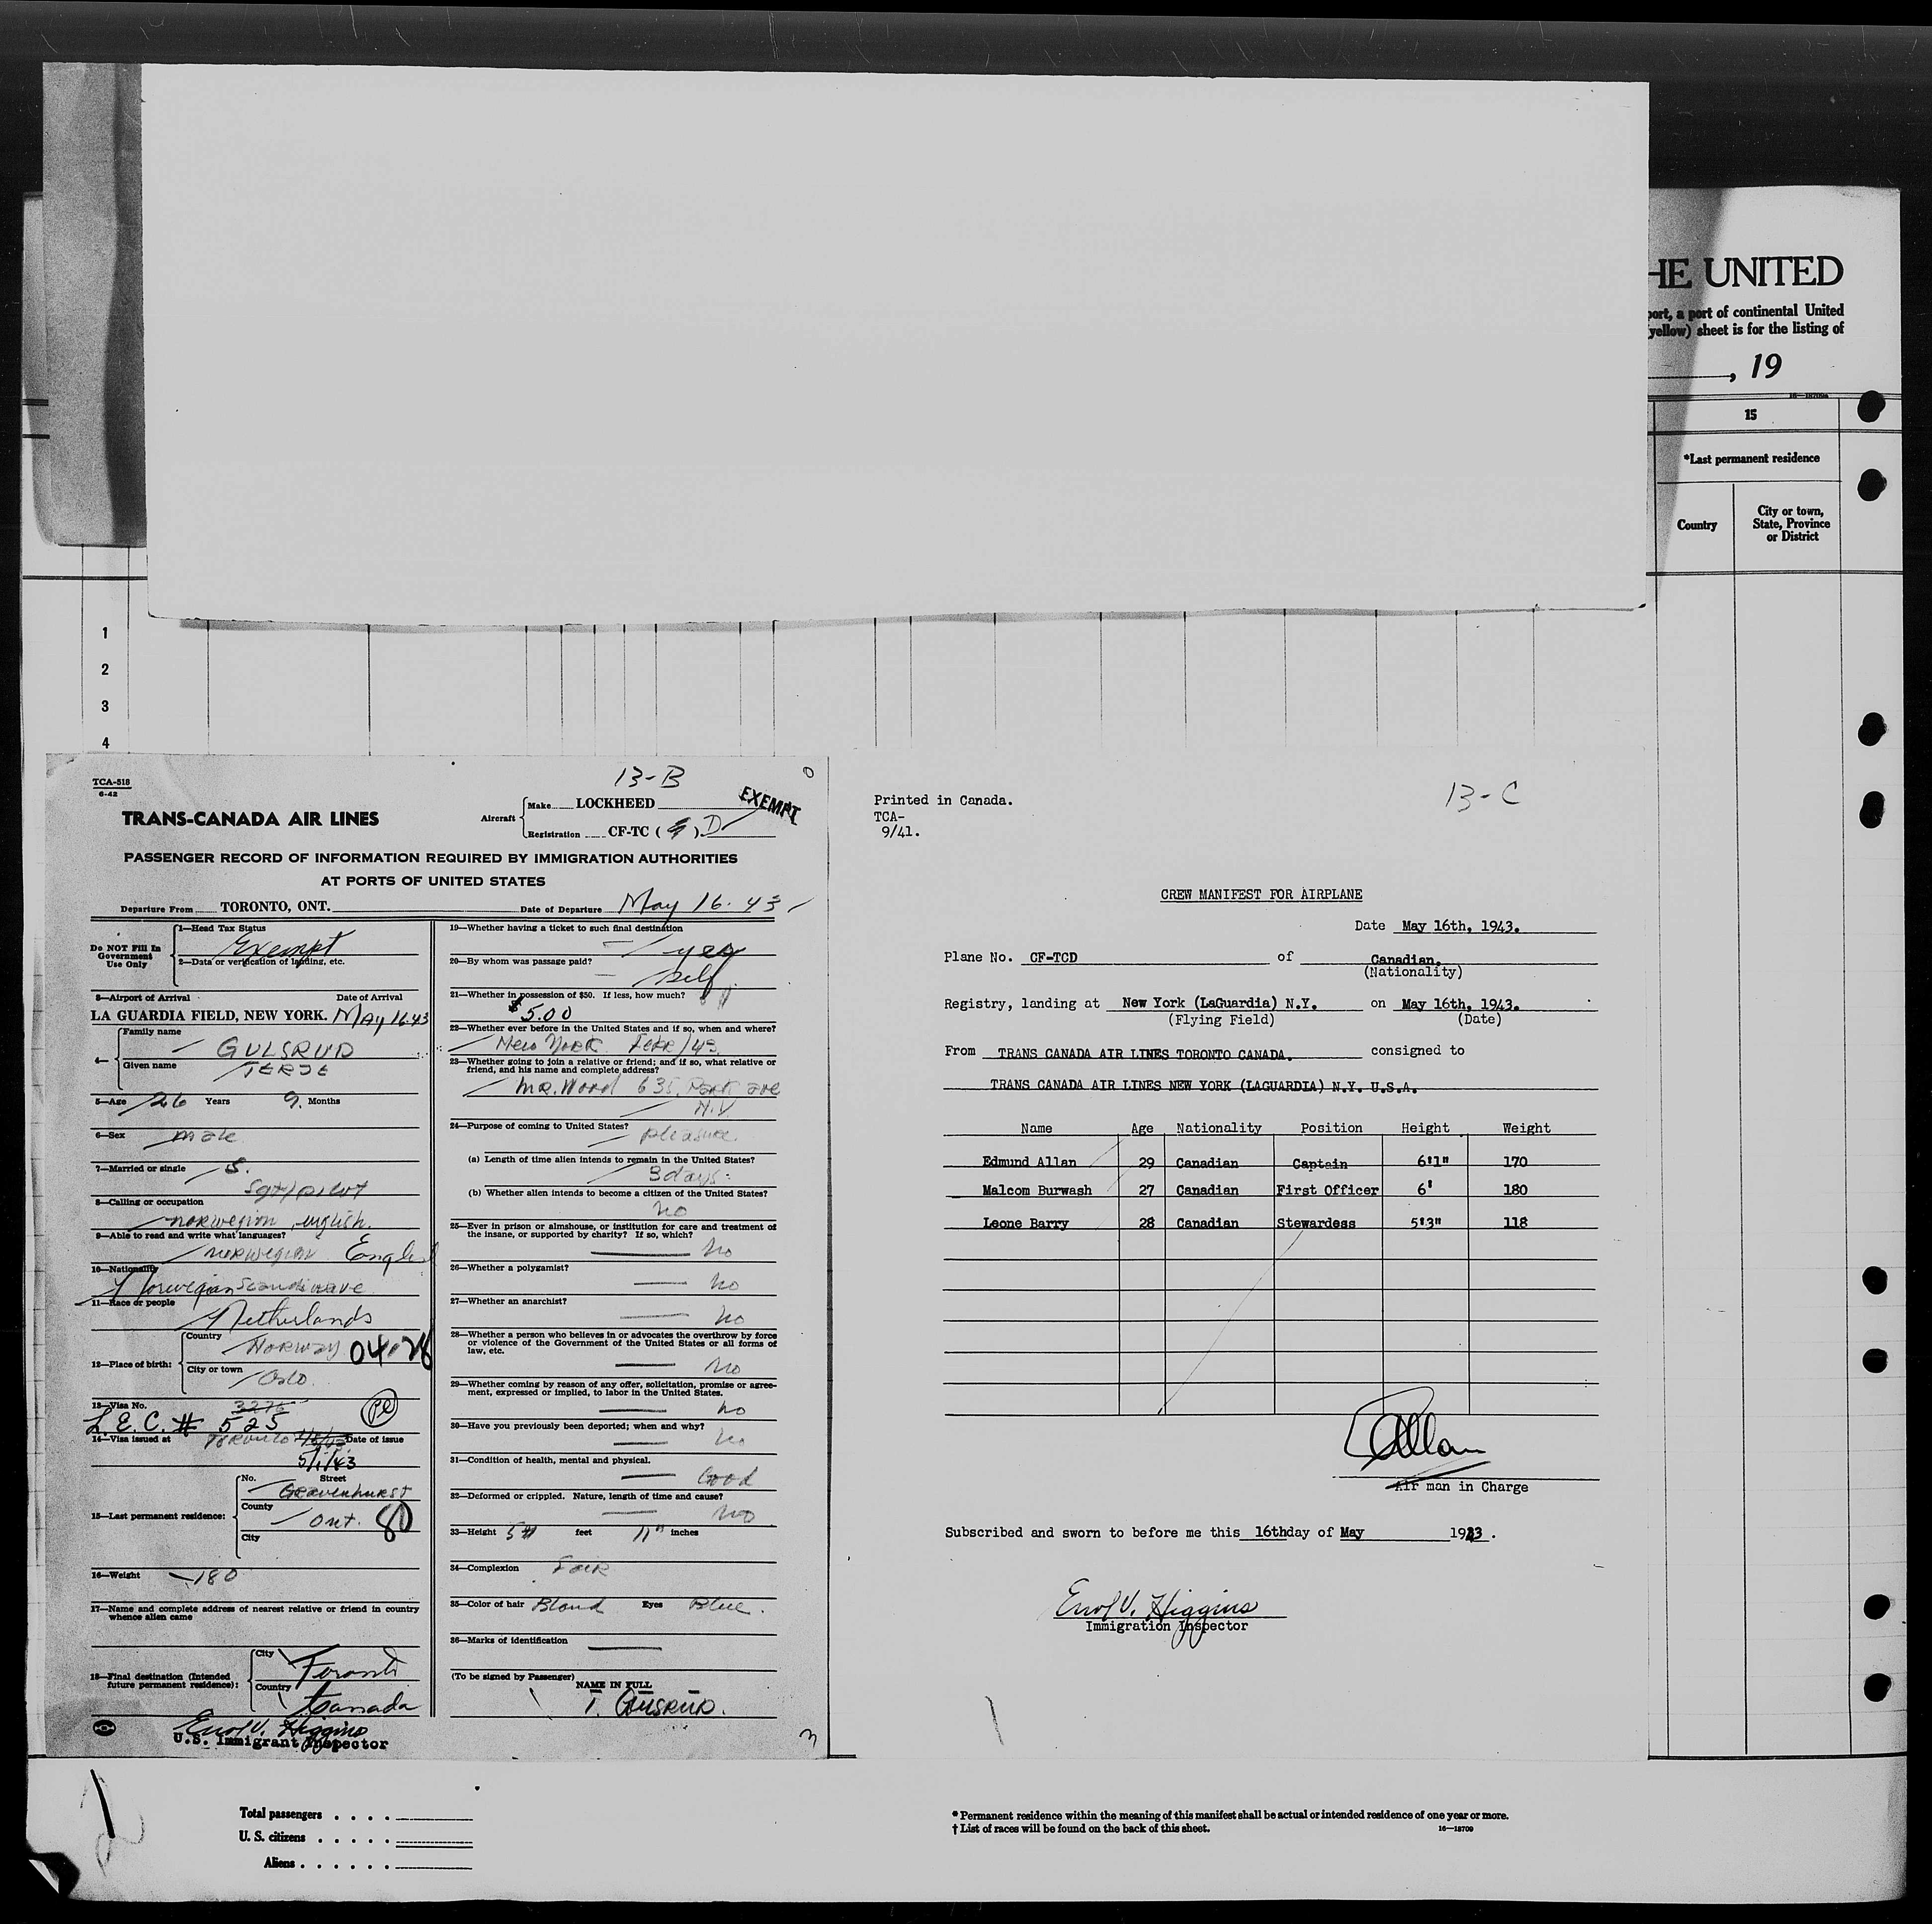 HE UNITED
port, a port of continental United
yellow) sheet is for the listing of
, 19
16—18709a
15
*Last permanent residence
Country
City or town,
State, Province
or District
1
2
3
4
TCA-518
6-42
13-B
TRANS-CANADA AIR LINES
Aircraft
Make LOCKHEED
Registration CF-TC ( ) D
EXEMPT
PASSENGER RECORD OF INFORMATION REQUIRED BY IMMIGRATION AUTHORITIES
AT PORTS OF UNITED STATES
Departure From TORONTO, ONT. Date of Departure May 16. 43
Do NOT Fill In
Government
Use Only
1—Head Tax Status
Exempt
2—Data or verification of landing, etc.
3—Airport of Arrival Date of Arrival
LA GUARDIA FIELD, NEW YORK. MAY 16.43
4—
Family name
GULSRUD
Given name
TERJE
5—Age 26 Years 9. Months
6—Sex male
7—Married or single S.
Sgt/pilot
8—Calling or occupation
norwegian, english.
9—Able to read and write what languages?
norwegian English
10—Nationality
Norwegian Scandinave
11—Race or people
Netherlands
12—Place of birth:
Country
Norway
City or town
Oslo.
13—Visa No. 3276
L.E.C. # 525
14—Visa issued at Toronto Date of issue
5/1/43
15—Last permanent residence:
No. Street
Gravenhurst
County
Ont. 80
City
16—Weight 180
17—Name and complete address of nearest relative or friend in country
whence alien came
18—Final destination (Intended
future permanent residence):
City
Toronto
Country
Canada
Errol V. Higgins
U.S. Immigrant Inspector
19—Whether having a ticket to such final destination
yes
20—By whom was passage paid?
self
21—Whether in possession of $50. If less, how much?
$5.00
22—Whether ever before in the United States and if so, when and where?
New York Febr/43.
23—Whether going to join a relative or friend; and if so, what relative or
friend, and his name and complete address?
Mr. Wood 635. Park ave
N.Y.
24—Purpose of coming to United States?
pleasure.
(a) Length of time alien intends to remain in the United States?
3 days.
(b) Whether alien intends to become a citizen of the United States?
no
25—Ever in prison or almshouse, or institution for care and treatment of
the insane, or supported by charity? If so, which?
no
26—Whether a polygamist?
no
27—Whether an anarchist?
no
28—Whether a person who believes in or advocates the overthrow by force
or violence of the Government of the United States or all forms of
law, etc.
no
29—Whether coming by reason of any offer, solicitation, promise or agree-
ment, expressed or implied, to labor in the United States.
no
30—Have you previously been deported; when and why?
no
31—Condition of health, mental and physical.
Good
32—Deformed or crippled. Nature, length of time and cause?
no
33—Height 5 feet 11" inches
34—Complexion Fair
35—Color of hair Blond Eyes Blue.
36—Marks of identification
(To be signed by Passenger)
NAME IN FULL
T. Gulsrud.
Printed in Canada.
TCA-
9/41.
13-C
CREW MANIFEST FOR AIRPLANE
Date May 16th, 1943.
Plane No. CF-TCD of Canadian.
(Nationality)
Registry, landing at New York (LaGuardia) N.Y. on May 16th, 1943.
(Flying Field) (Date)
From TRANS CANADA AIR LINES TORONTO CANADA. consigned to
TRANS CANADA AIR LINES NEW YORK (LAGUARDIA) N.Y. U.S.A.
Name Age Nationality Position Height Weight
Edmund Allan 29 Canadian Captain 6'1" 170
Malcom Burwash 27 Canadian First Officer 6' 180
Leone Barry 28 Canadian Stewardess 5'3" 118
EAllan
Air man in Charge
Subscribed and sworn to before me this 16thday of May 1943.
Errol V. Higgins
Immigration Inspector
Total passengers . . . .
U. S. citizens . . . . .
Aliens . . . . . .
* Permanent residence within the meaning of this manifest shall be actual or intended residence of one year or more.
† List of races will be found on the back of this sheet.
16—18709